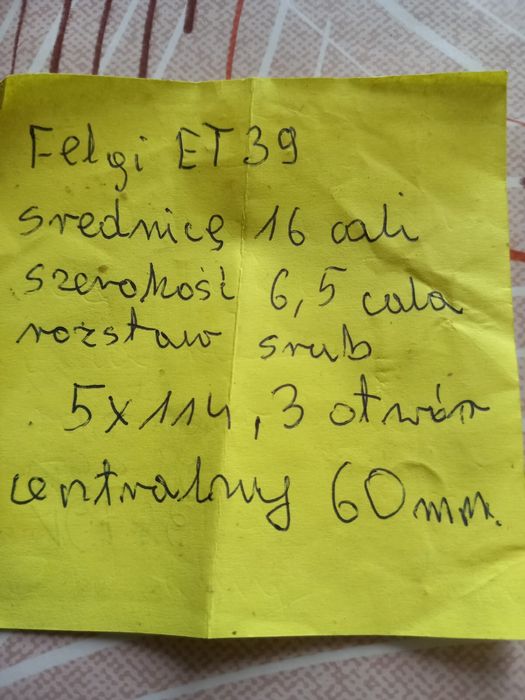 Felgi ET 39
srednicę 16 cali
szerokość 6,5 cala
rozstaw srub
5x114,3 otwór
centralny 60 mm.